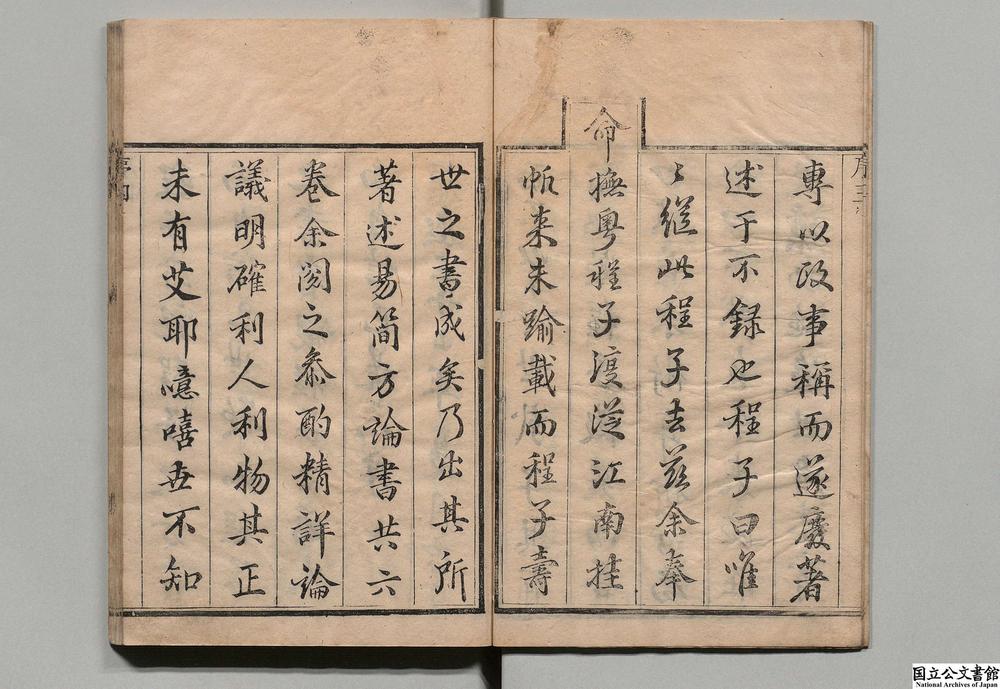 序三
專以政事稱而遂廢著
述于不錄也程子曰唯
〻繇此程子去茲余奉
命
撫粤程子復從江南挂
帆来未踰載而程子壽
世之書成矣乃出其所
著述易簡方論書共六
卷余閱之叅酌精詳論
議明確利人利物其正
未有艾耶噫嘻世不知
序四
国立公文書館
National Archives of Japan